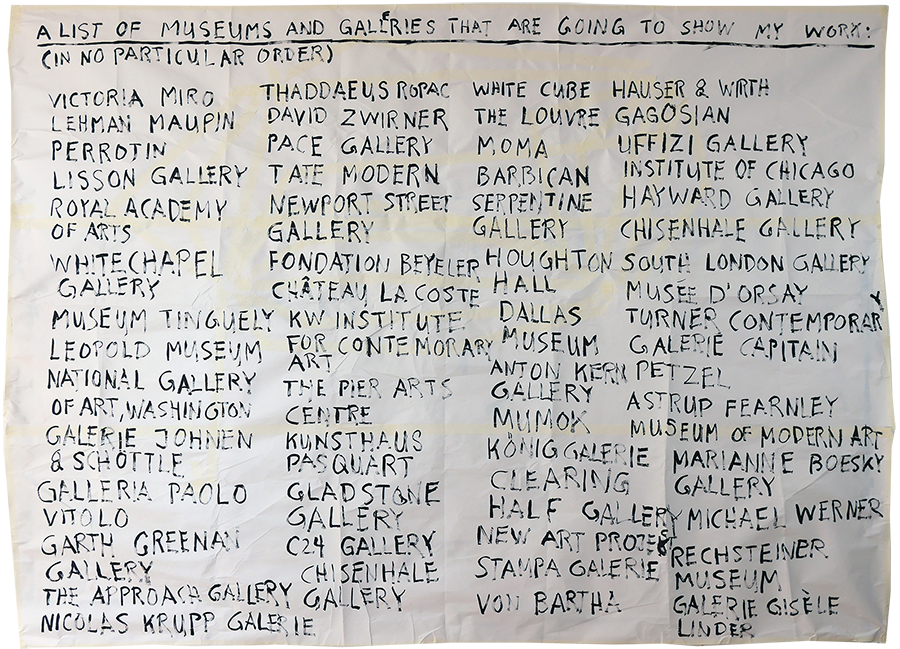 A LIST OF MUSEUMS AND GALERIES THAT ARE GOING TO SHOW MY WORK:
(IN NO PARTICULAR ORDER)
VICTORIA MIRO
LEHMAN MAUPIN
PERROTIN
LISSON GALLERY
ROYAL ACADEMY
OF ARTS
WHITECHAPEL
GALLERY
MUSEUM TINGUELY
LEOPOLD MUSEUM
NATIONAL GALLERY
OF ART, WASHINGTON
GALERIE JOHNEN
& SCHÖTTLE
GALLERIA PAOLO
VITOLO
GARTH GREENAN
GALLERY
THE APPROACH GALLERY
NICOLAS KRUPP GALERIE
THADDAEUS ROPAC
DAVID ZWIRNER
PACE GALLERY
TATE MODERN
NEWPORT STREET
GALLERY
FONDATION BEYELER
CHÂTEAU LA COSTE
KW INSTITUTE
FOR CONTEMORARY
ART
THE PIER ARTS
CENTRE
KUNSTHAUS
PASQUART
GLADSTONE
GALLERY
C24 GALLERY
CHISENHALE
GALLERY
WHITE CUBE
THE LOUVRE
MOMA
BARBICAN
SERPENTINE
GALLERY
HOUGHTON
HALL
DALLAS
MUSEUM
ANTON KERN
GALLERY
MUMOK
KÖNIG GALERIE
CLEARING
HALF GALLERY
NEW ART PROJEKT
STAMPA GALERIE
VON BARTHA
HAUSER & WIRTH
GAGOSIAN
UFFIZI GALLERY
INSTITUTE OF CHICAGO
HAYWARD GALLERY
CHISENHALE GALLERY
SOUTH LONDON GALLERY
MUSÉE D'ORSAY
TURNER CONTEMPORARY
GALERIE CAPITAIN
PETZEL
ASTRUP FEARNLEY
MUSEUM OF MODERN ART
MARIANNE BOESKY
GALLERY
MICHAEL WERNER
RECHSTEINER
MUSEUM
GALERIE GISÈLE
LINDER